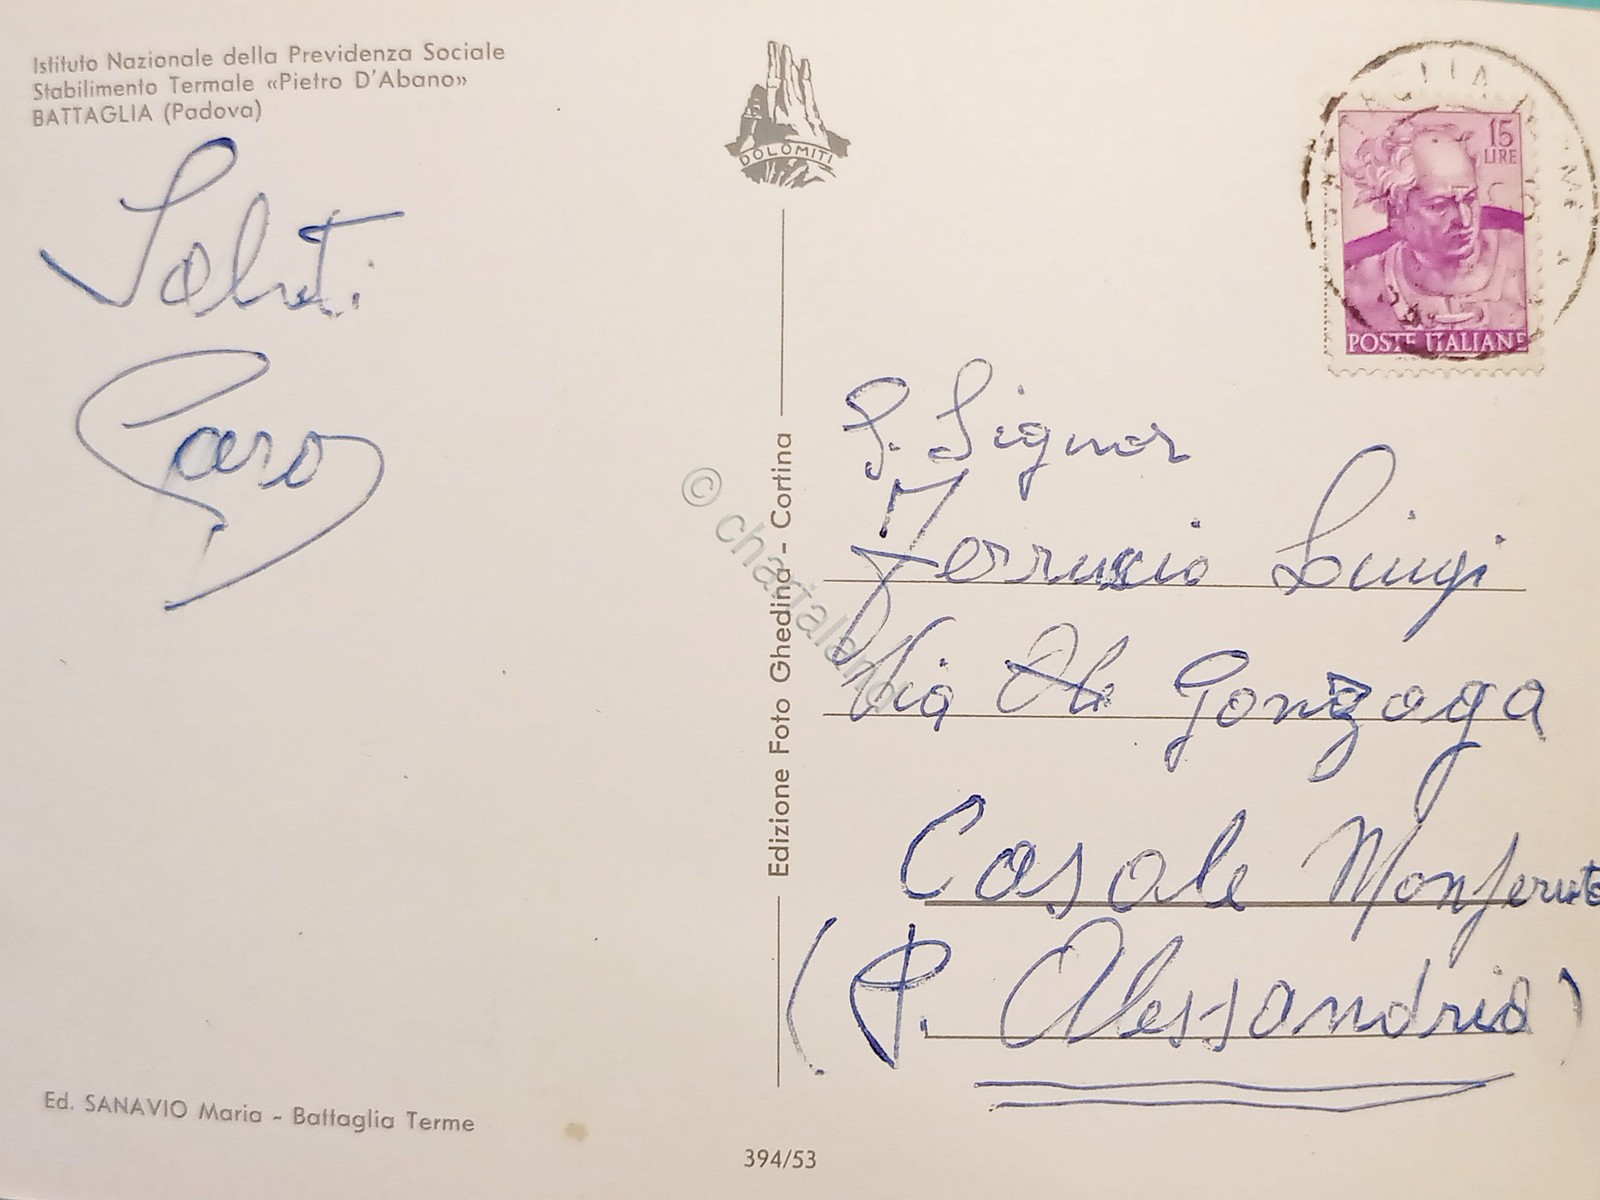 Istituto Nazionale della Previdenza Sociale
Stabilimento Termale «Pietro D'Abano»
BATTAGLIA (Padova)
Saluti
DOLOMITI
15
LIRE
POSTE ITALIANE
Edizione Foto Ghedina - Cortina
© chartaland
Signor
Luigi
Via Gonzaga
Casale Monferrato
(P. Alessandria)
Ed. SANAVIO Maria - Battaglia Terme
394/53